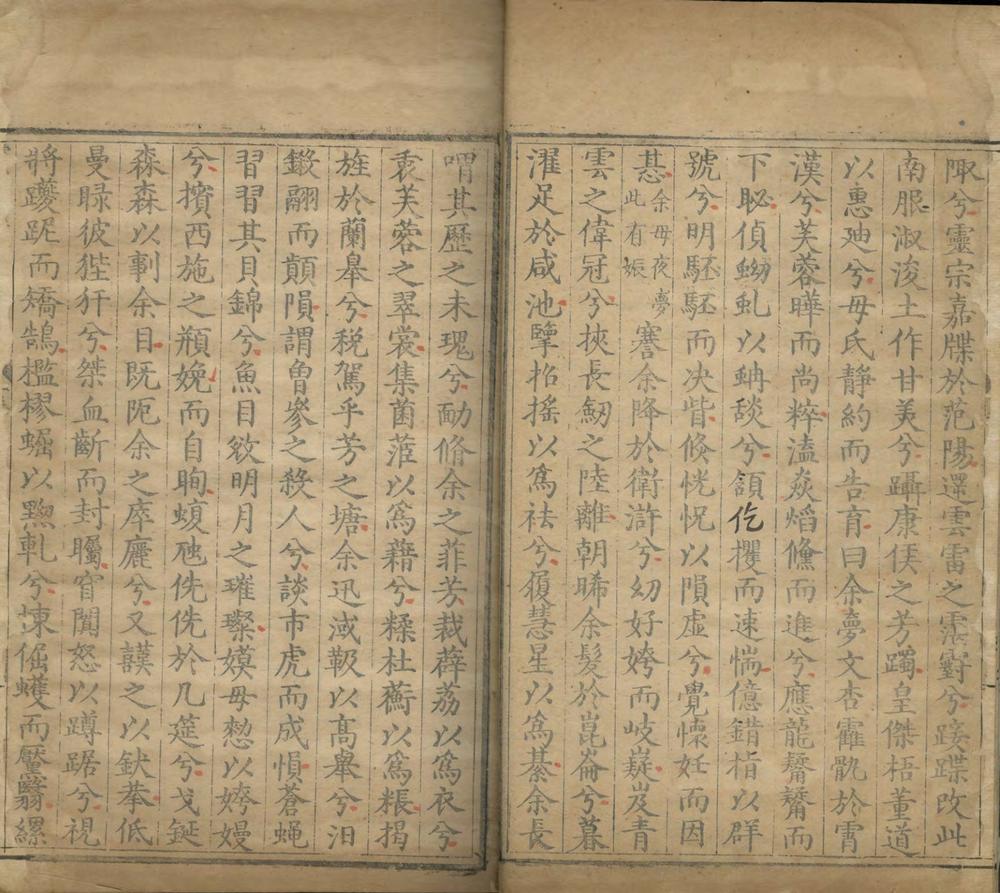 陬兮靈宗嘉牒於范陽還雲雷之霈霨兮蹊蹀改此
南服淑浚土作甘美兮躡康侯之芳躅皇傑梧董道
以惠廸兮母氏靜約而告育曰余夢文杏靃骩於霄
漢兮芙蓉曄而尚粹溘焱熖儵而進兮應龍臠臠而
下眇偵蚴虬以蚺舕兮頷仡欔而速惴億錯㫖以群
號兮明駓駓而決眥倏恍怳以隕虛兮覺懷妊而因
惎余母夜夢此有娠 謇余降於衛滸兮幼好姱而岐嶷岌青
雲之偉冠兮挾長劒之陸離朝晞余髮於崑崙兮暮
濯足於咸池擥招搖以爲袪兮履慧星以爲綦余長
喟其歷之未瑰兮勔脩余之菲芳裁薜荔以爲衣兮
裛芙蓉之翠裳集菌蓙以爲藉兮糅杜蘅以爲粻揭
旌於蘭皋兮稅駕乎芳之塘余迅淢馺以高舉兮汨
鎩翮而顛隕謂曾參之殺人兮談市虎而成惧蒼蝇
習習其貝錦兮魚目欲明月之璀璨嫫母愸以姱嫚
兮擯西施之頩婏而自眴蝮虺侁侁於几筵兮戈鋋
森森以剚余目既阨余之庳廲兮又謨之以鈌菶低
曼睩彼狴犴兮桀血齗而封矚窅闃怒以蹲踞兮視
將躨跜而矯鵠檻樛蜛以黝軋兮悚倔蠖而黶翳縲